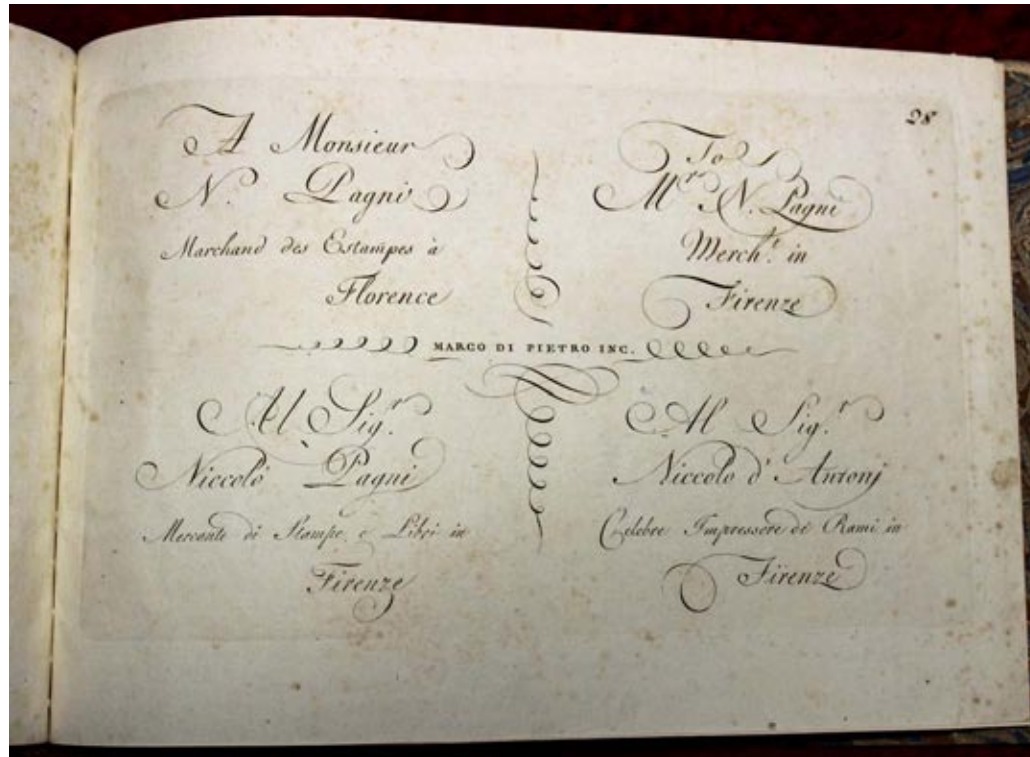 28
A Monsieur
N. Pagni
Marchand des Estampes à
Florence
To
Mr. N. Pagni
Mercht. in
Firenze
MARCO DI PIETRO INC.
Al Sigr.
Niccolò Pagni
Mercante di Stampe e Libri in
Firenze
Al Sigr.
Niccolo d'Antonj
Celebre Impressore di Rami in
Firenze